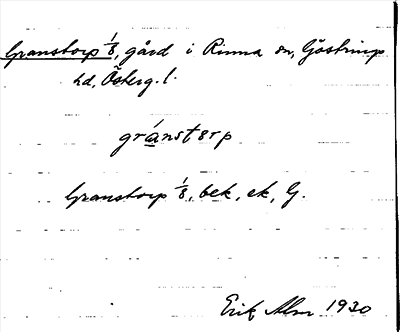 Granstorp 1/8, gård i Rinna sn, Göstrings
hd, Österg. l.
gránstɘrp
Granstorp 1/8, bek, ek, G.
Erik Alm 1930